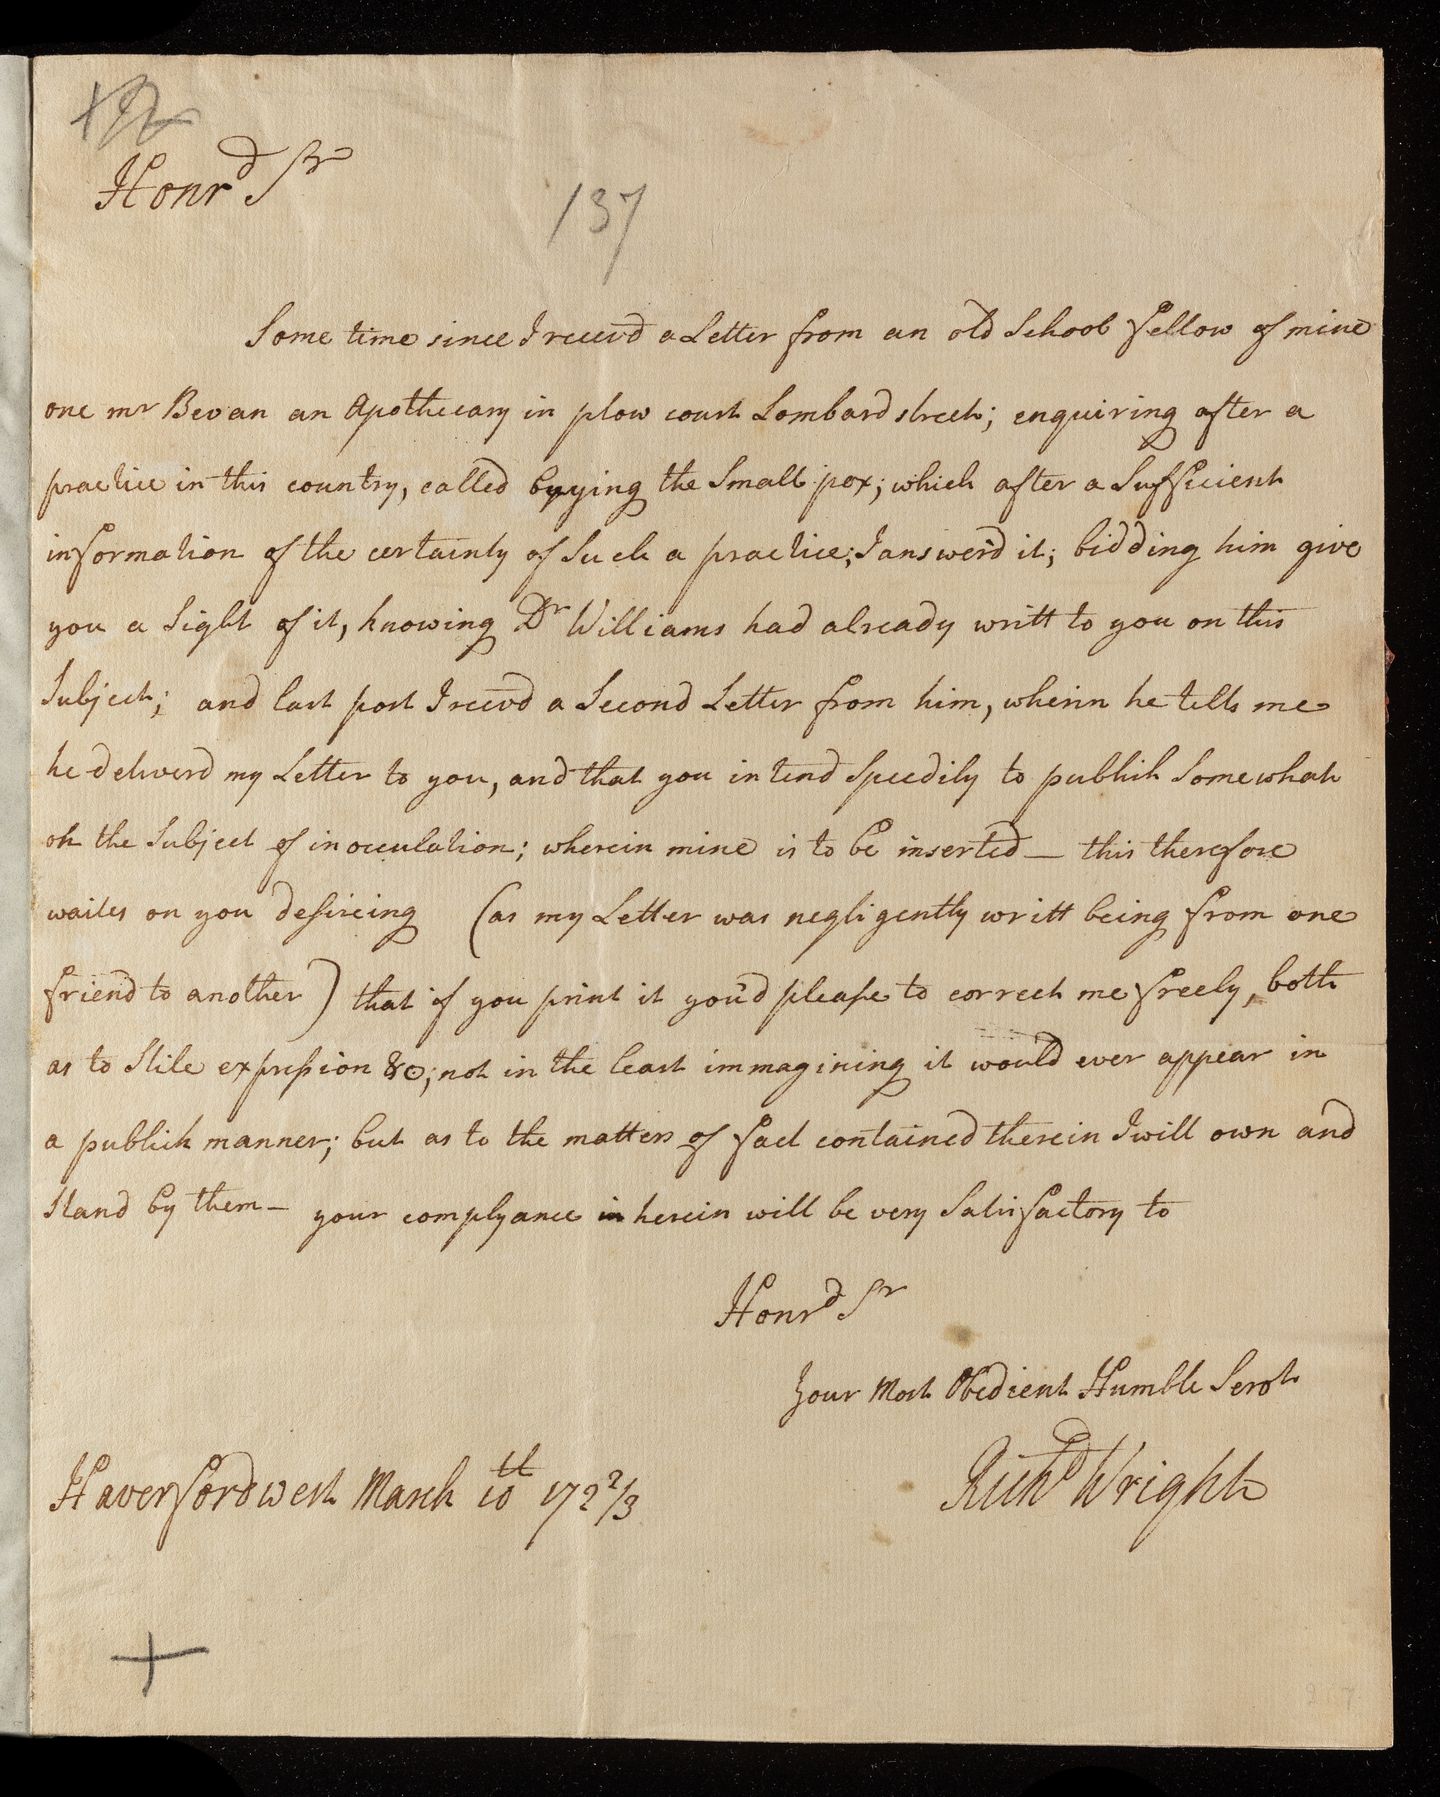 Honrd Sr
137
Some time since I receivd a Letter from an old School fellow of mine
one mr Bevan an Apothecary in plow court Lombard street; enquiring after a
practice in this country, called buying the Small pox; which after a Sufficient
information of the certainty of Such a practice; I answerd it; bidding him give
you a Sight of it, knowing Dr Williams had already writt to you on this
Subject; and last post I receivd a Second Letter from him, wherin he tells me
he deliverd my Letter to you, and that you intend Speedily to publish Somewhat
on the Subject of inocculation; wherein mine is to be inserted — this therefore
waites on you desireing (as my Letter was negligently writt being from one
friend to another) that if you print it you'd please to correct me freely, both
as to Stile expression &c; not in the least immagining it would ever appear in
a publick manner; but as to the matters of fact contained therein I will own and
Stand by them — your complyance in herein will be very Satisfactory to
Honrd Sr
Your Most Obedient Humble Servt
Richd Wright
Haverfordwest March 10th 172 2/3